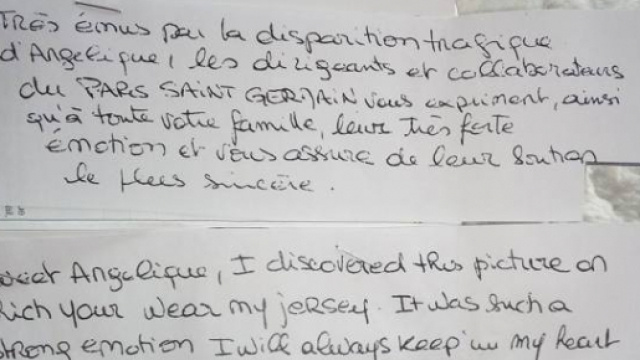 Très émus par la disparition tragique
d'Angelique, les dirigeants et collaborateurs
du PARIS SAINT GERMAIN vous expriment, ainsi
qu'à toute votre famille, leur très forte
émotion et vous assure de leur soutien
le plus sincère.
Angelique, I discovered this picture on
which your wear my jersey. It was such a
strong emotion I will always keep in my heart